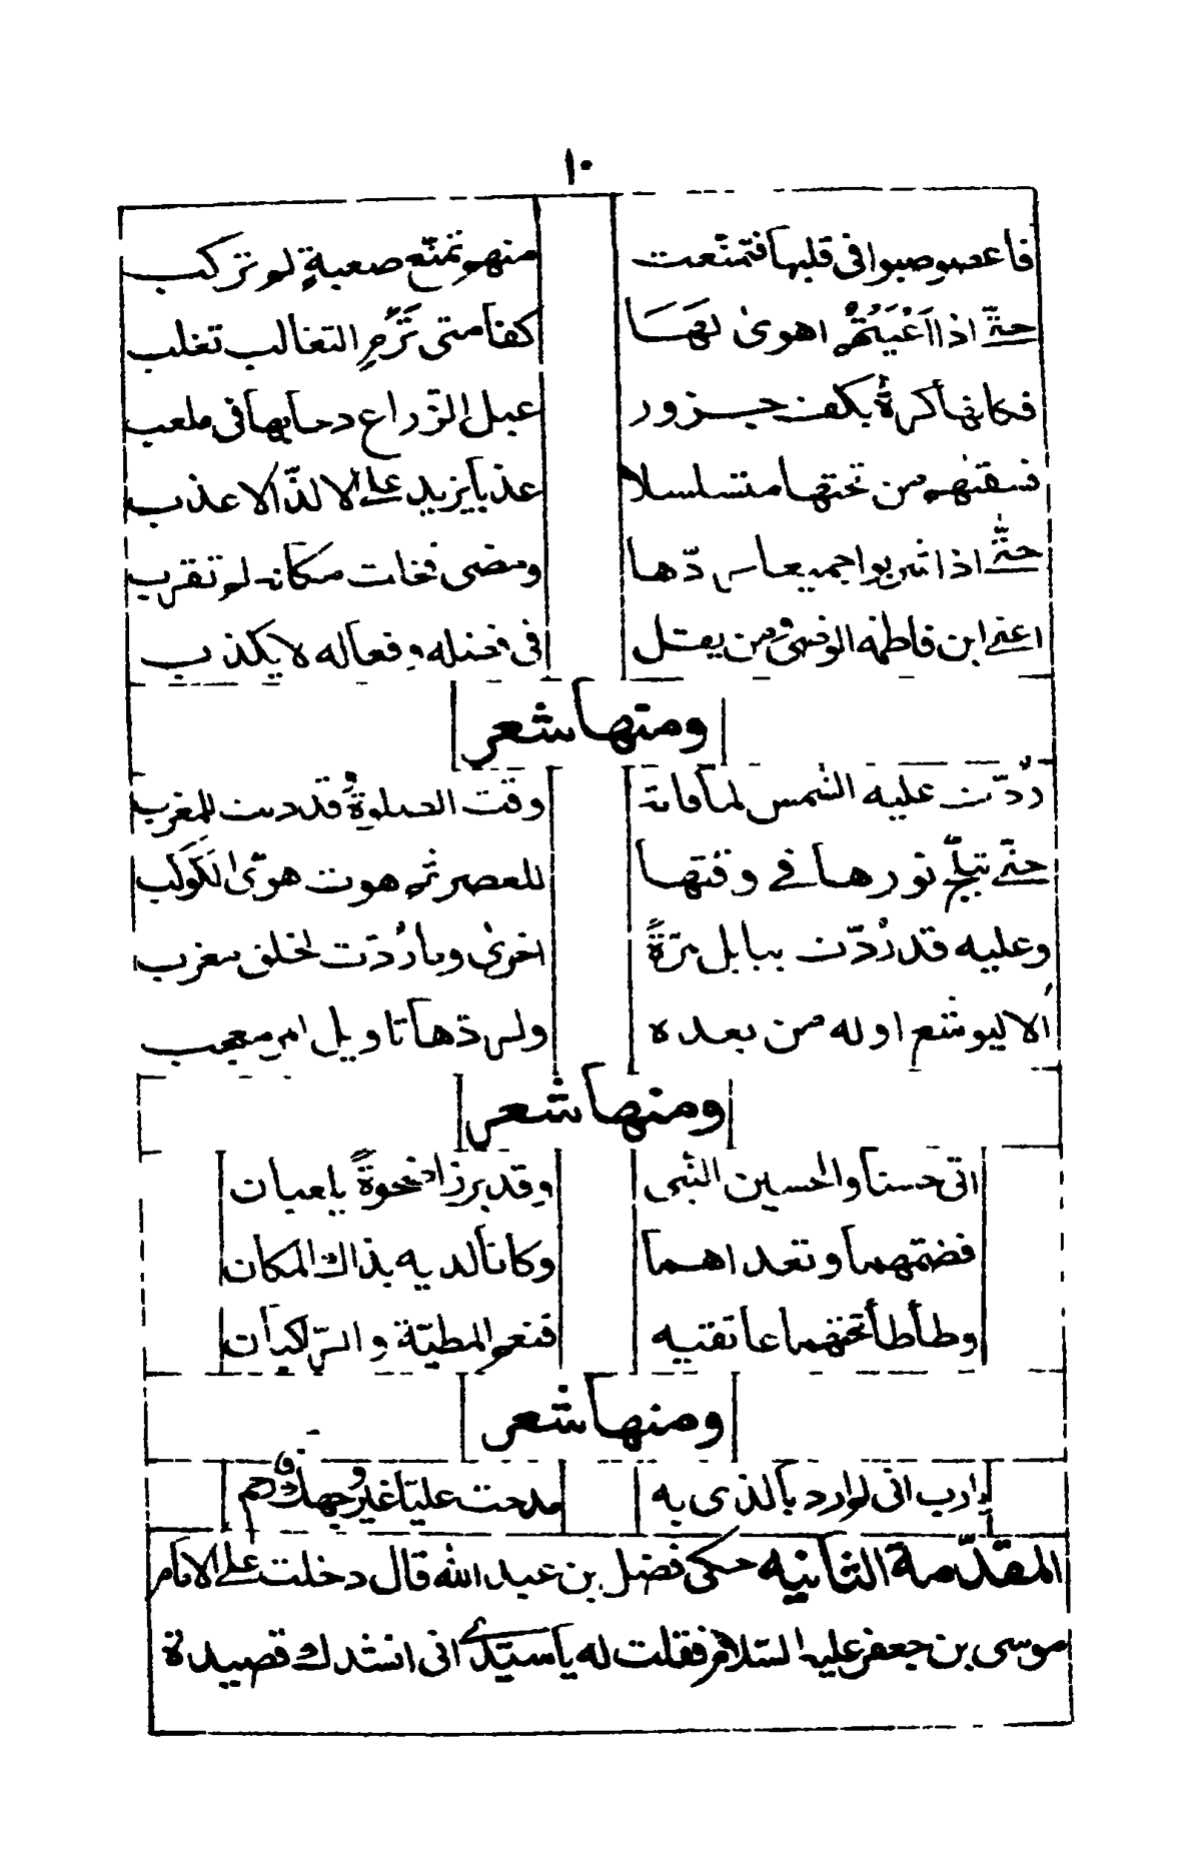 ١٠
فاعصوصبوا فى قلبها فتمنّعت منهم تمنّع صعبةٍ لم تركب
حتّى اذا اَعْيَتْهُمُ اهوىٰ لهَا كفا متى تَرُمِ التغالب تغلب
فكانها كرةٌ بكف حزور عبل الزّراع دحابها فى ملعب
فسقتهم من تحتها متسلسلا عذبا يزيد على الالذّ الاعذب
حتّى اذا شربوا جميعا ردّها ومضى فخلت مكانه لم تقرب
اعنى ابن فاطمة الوصى ومن يقل فى فضله وفعاله لا يكذب
ومنها شعر
رُدّت عليه الشمس لما فاته وقت الصلوةِ وَقد دنت للمغرب
حتّى تبلّج نورها فى وقتها للعصر ثم هوت هوىّ الكَوكَب
وعليه قد رُدّت ببابل مرّةً اخرىٰ وما رُدّت لخلق معرب
اَلا ليوشع اوله من بعده ولردّها تاويل امر معجب
ومنها شعر
اتى حسنا والحسين النّبى وقد برزا ضحوةً يلعبان
فضمّهما وتفداهما وكانا لديه بذاك المكان
وطأطأ تحتهما عاتقيه فنعم المطيّة والرّاكبان
ومنها شعر
يا رب انى لم ارد بالذى به مدحت عليّا غير وجهك فارحم
المقدّمة الثانيه حكى فضل بن عبد الله قال دخلت على الامام
موسى بن جعفر عليه السّلام فقلت له يا سيّدى انى انشدك قصيدة